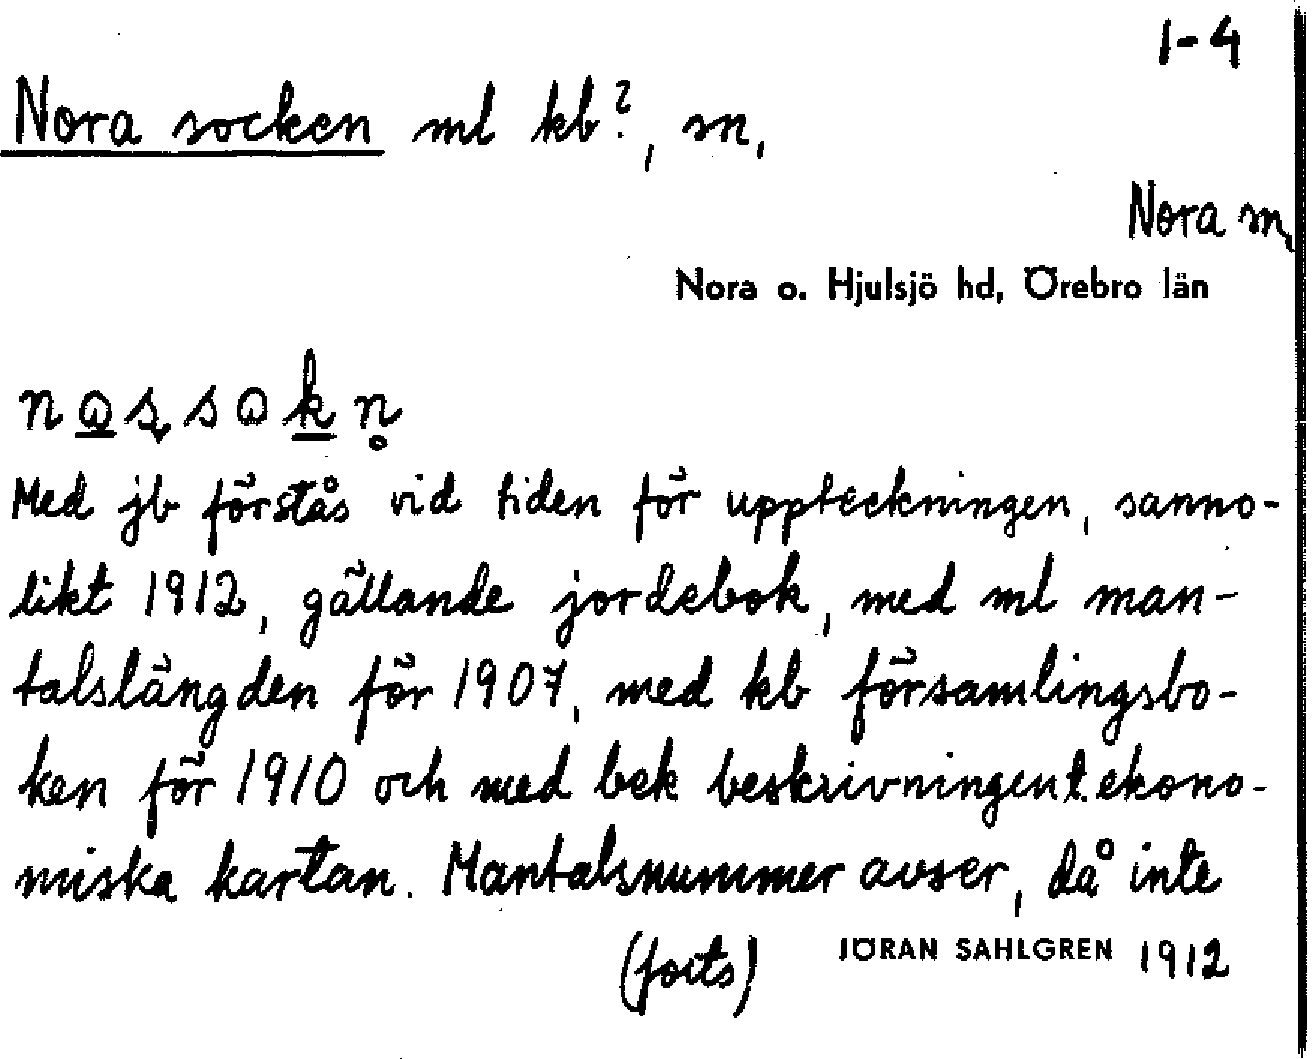 1-4
Nora socken ml kb?, m,
Nora m,
Nora o. Hjulsjö hd, Örebro län
Med jb förstås vid tiden för uppteckningen, sanno-
likt 1912, gällande jordebok, med ml man-
talslängden för 1907, med kb församlingsbo-
ken för 1910 och med bek beskrivningen t. ekono-
miska kartan. Mantalsnummer avser, då inte
(forts)
JÖRAN SAHLGREN 1912